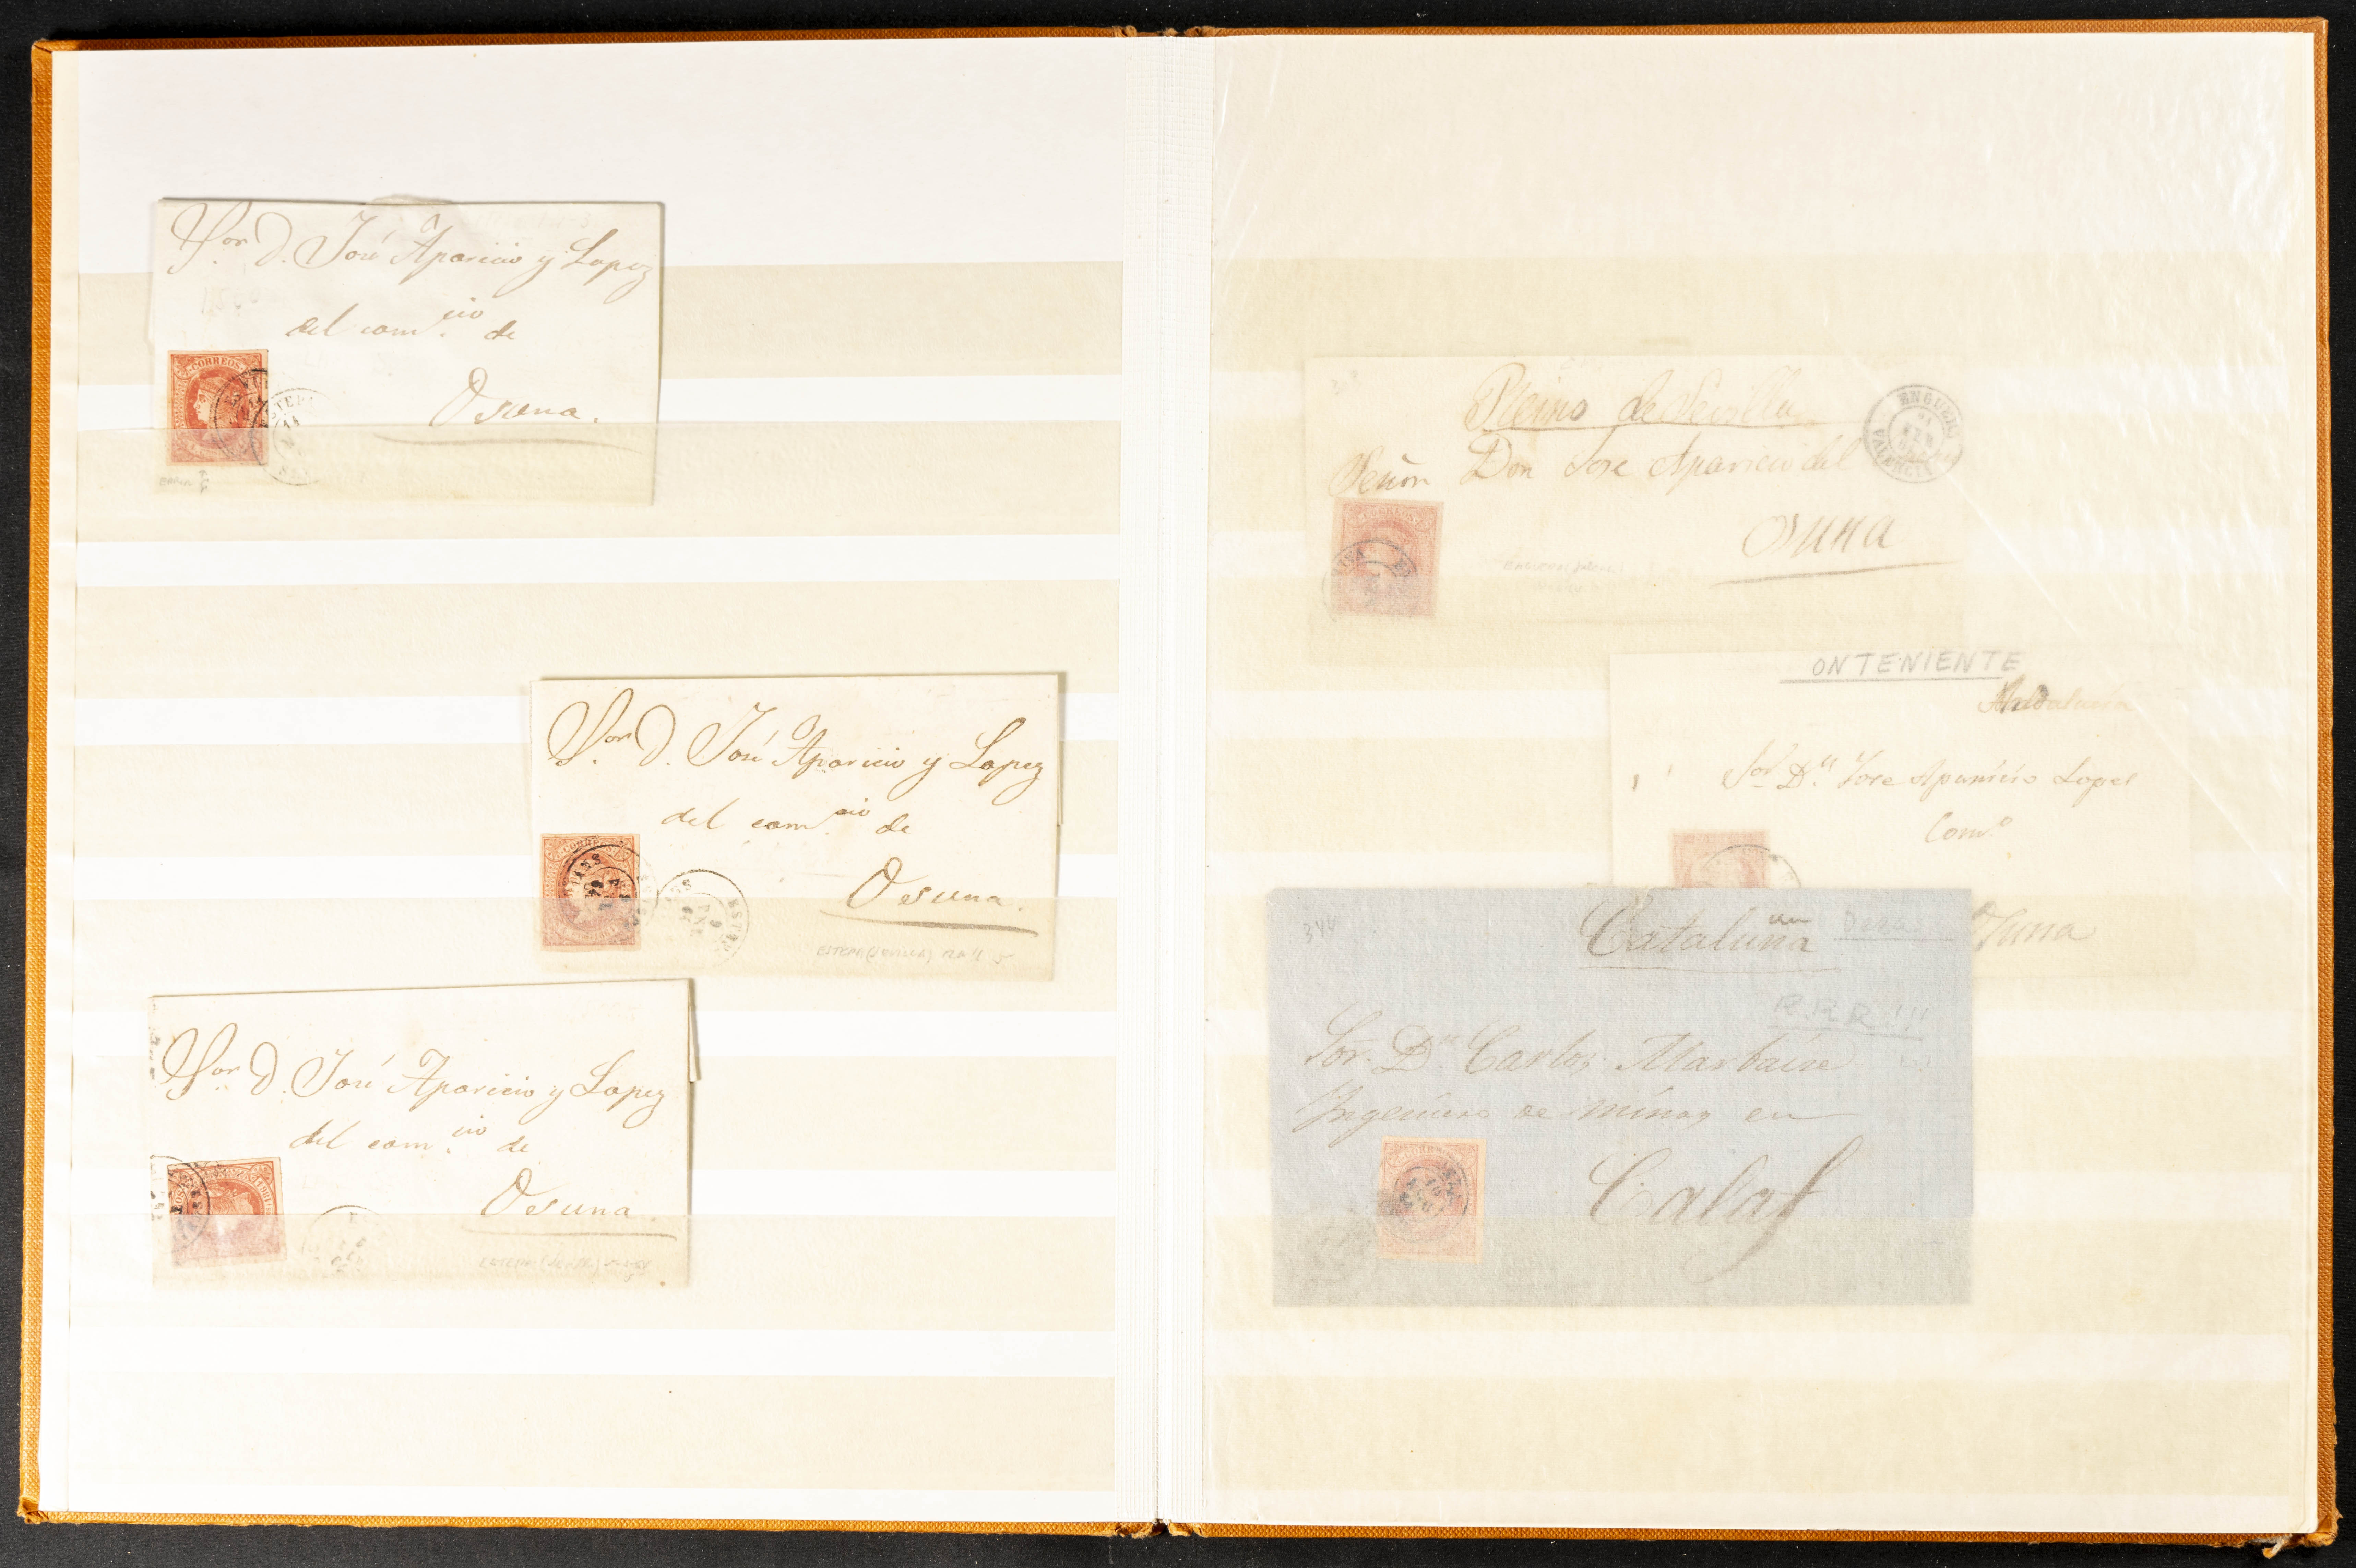 Sor D. José Aparicio y Lopez
del comcio de
Osuna.
CORREOS
ESTEPA
14
Sor D. José Aparicio y Lopez
del comcio de
Osuna.
CORREOS
ESTEPA (SEVILLA)
Sor D. José Aparicio y Lopez
del comcio de
Osuna.
ESTEPA (SEVILLA)
Reino de Sevilla
Señor Don Jose Aparicio del
Osuna
CORREOS
ENGUERA
VALENCIA
ONTENIENTE
Andalucia
Sor Dn Jose Aparicio Lopes
Como
Osuna
344
Cataluña
R.R.R!!!
Sor. Dn Carlos
Ingeniero de minas en
Calaf
CORREOS